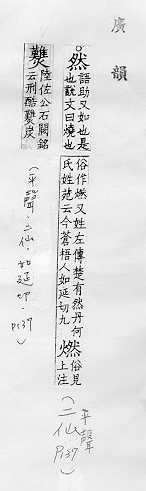 廣韻
然語助又如也是也說文曰燒也俗作燃又姓左傳楚有然丹何氏姓苑云今蒼梧人如延切九
燃俗見上注
(平聲 二仙 P137)
㸐陸佐公石闕銘云刑酷㸐炭
(平聲·二仙·如延切·P137)